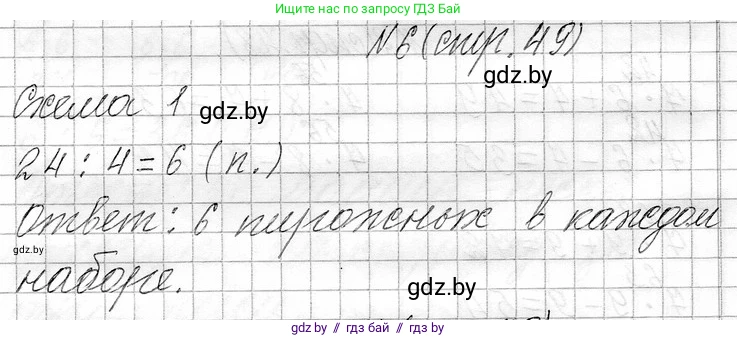 Ищите нас по запросу ГДЗ БАЙ
№6 (стр. 49)
gdz.by
Схема 1
gdz.by
24 : 4 = 6 (п.)
Ответ: 6 пирожных в каждом
gdz.by
наборе.
gdz.by
gdz.by // гдз бай // gdz.by